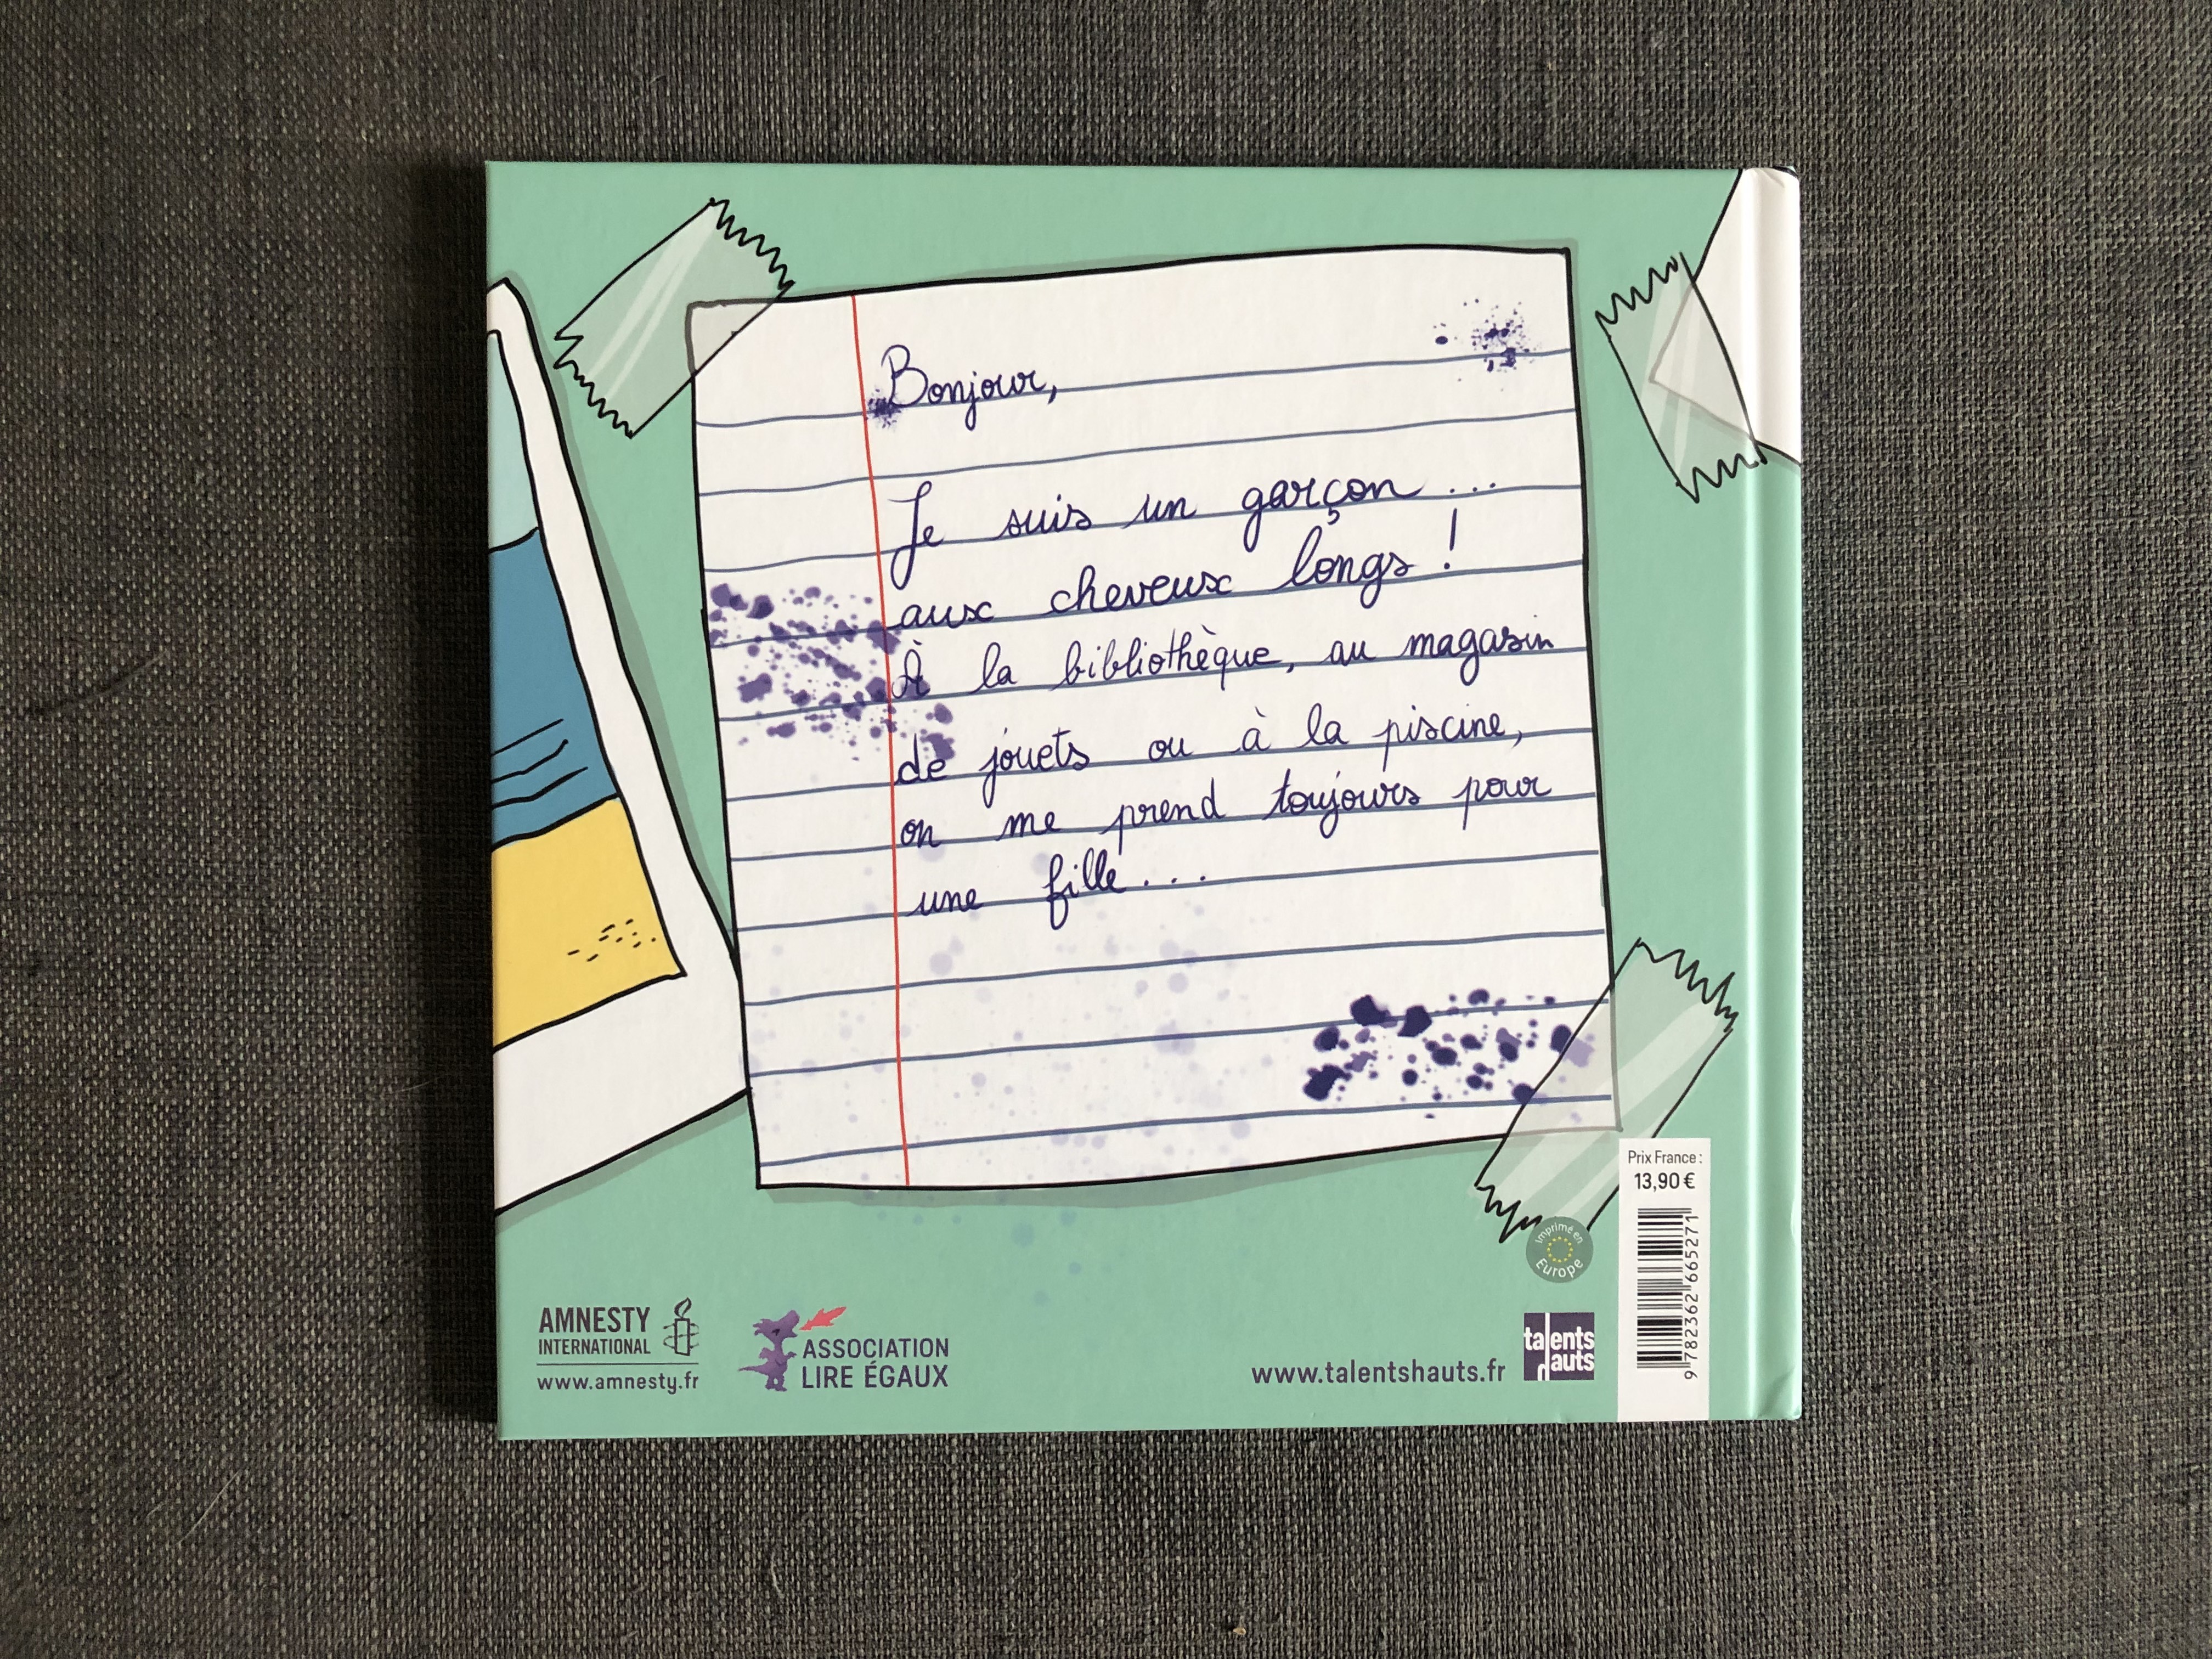 Bonjour,
Je suis un garçon ...
aux cheveux longs !
À la bibliothèque, au magasin
de jouets ou à la piscine,
on me prend toujours pour
une fille...
Prix France :
13,90 €
9 782362 665271
Imprimé en
Europe
AMNESTY
INTERNATIONAL
www.amnesty.fr
ASSOCIATION
LIRE ÉGAUX
www.talentshauts.fr
talents
hauts